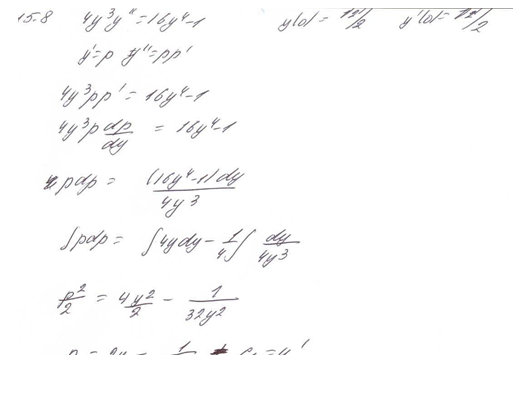 15.8 4y³y″=16y⁴-1 y(0)=√2/2 y′(0)=√2/2
y′=p y″=pp′
4y³pp′=16y⁴-1
4y³p dp/dy = 16y⁴-1
pdp = (16y⁴-1)dy/4y³
∫pdp = ∫4ydy - 1/4∫ dy/4y³
p²/2 = 4y²/2 - 1/32y²